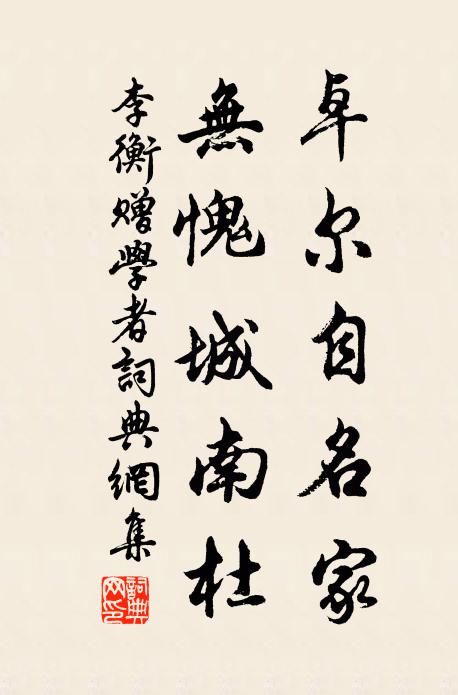 卓尔自名家
無愧城南杜
李衡贈學者詞典網集
詞典网印